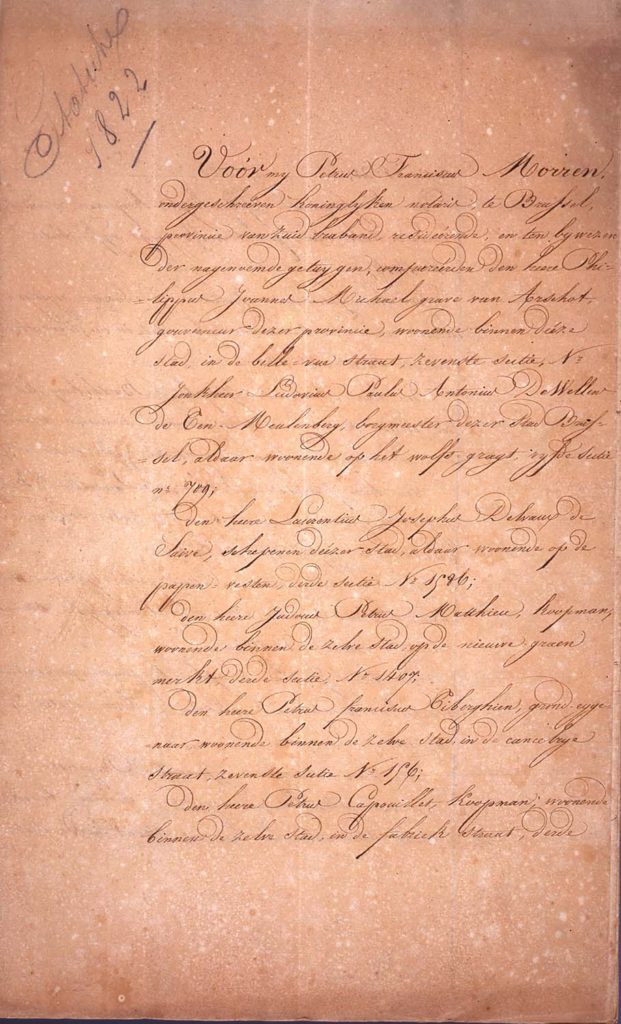 1822
Vóór my Petrus Franciscus Morren,
ondergeschreven koninglyken notaris, te Brussel,
provincie van Zuid braband, residerende, en ten bywezen
der nagenoemde getuygen, compareerden den heere Phi-
-lippus Joannes Michael, grave van Arschot,
gouverneur dezer provincie, woonende binnen déeze
stad, in de belle-vue straat, zevenste sectie, N.º
Jonkheer Ludovicus Paulus Antonius De Wellens
de Ten-Meulenberg, borgmeester dezer stad Brus-
sel, aldaar woonende op het wolfs-gragt, vyfde sectie
n.º 789;
den heere Laurentius Josephus Delvaux de
Saive, schepenen déezer stad, aldaar woonende op de
papen-vesten, derde sectie N.º 1586;
den heere Judocus Petrus Matthieu, koopman,
woonende binnen de zelve stad, op de nieuwe graen
merkt, derde sectie, N.º 1407;
den heere Petrus franciscus Tiberghien, grond-eyge-
-naar, woonende binnen de zelve stad, in de cancelrye
straat, zevenste sectie N.º 156;
den heere Petrus Capouillet, koopman, woonende
binnen de zelve stad, in de fabriek straat, derde